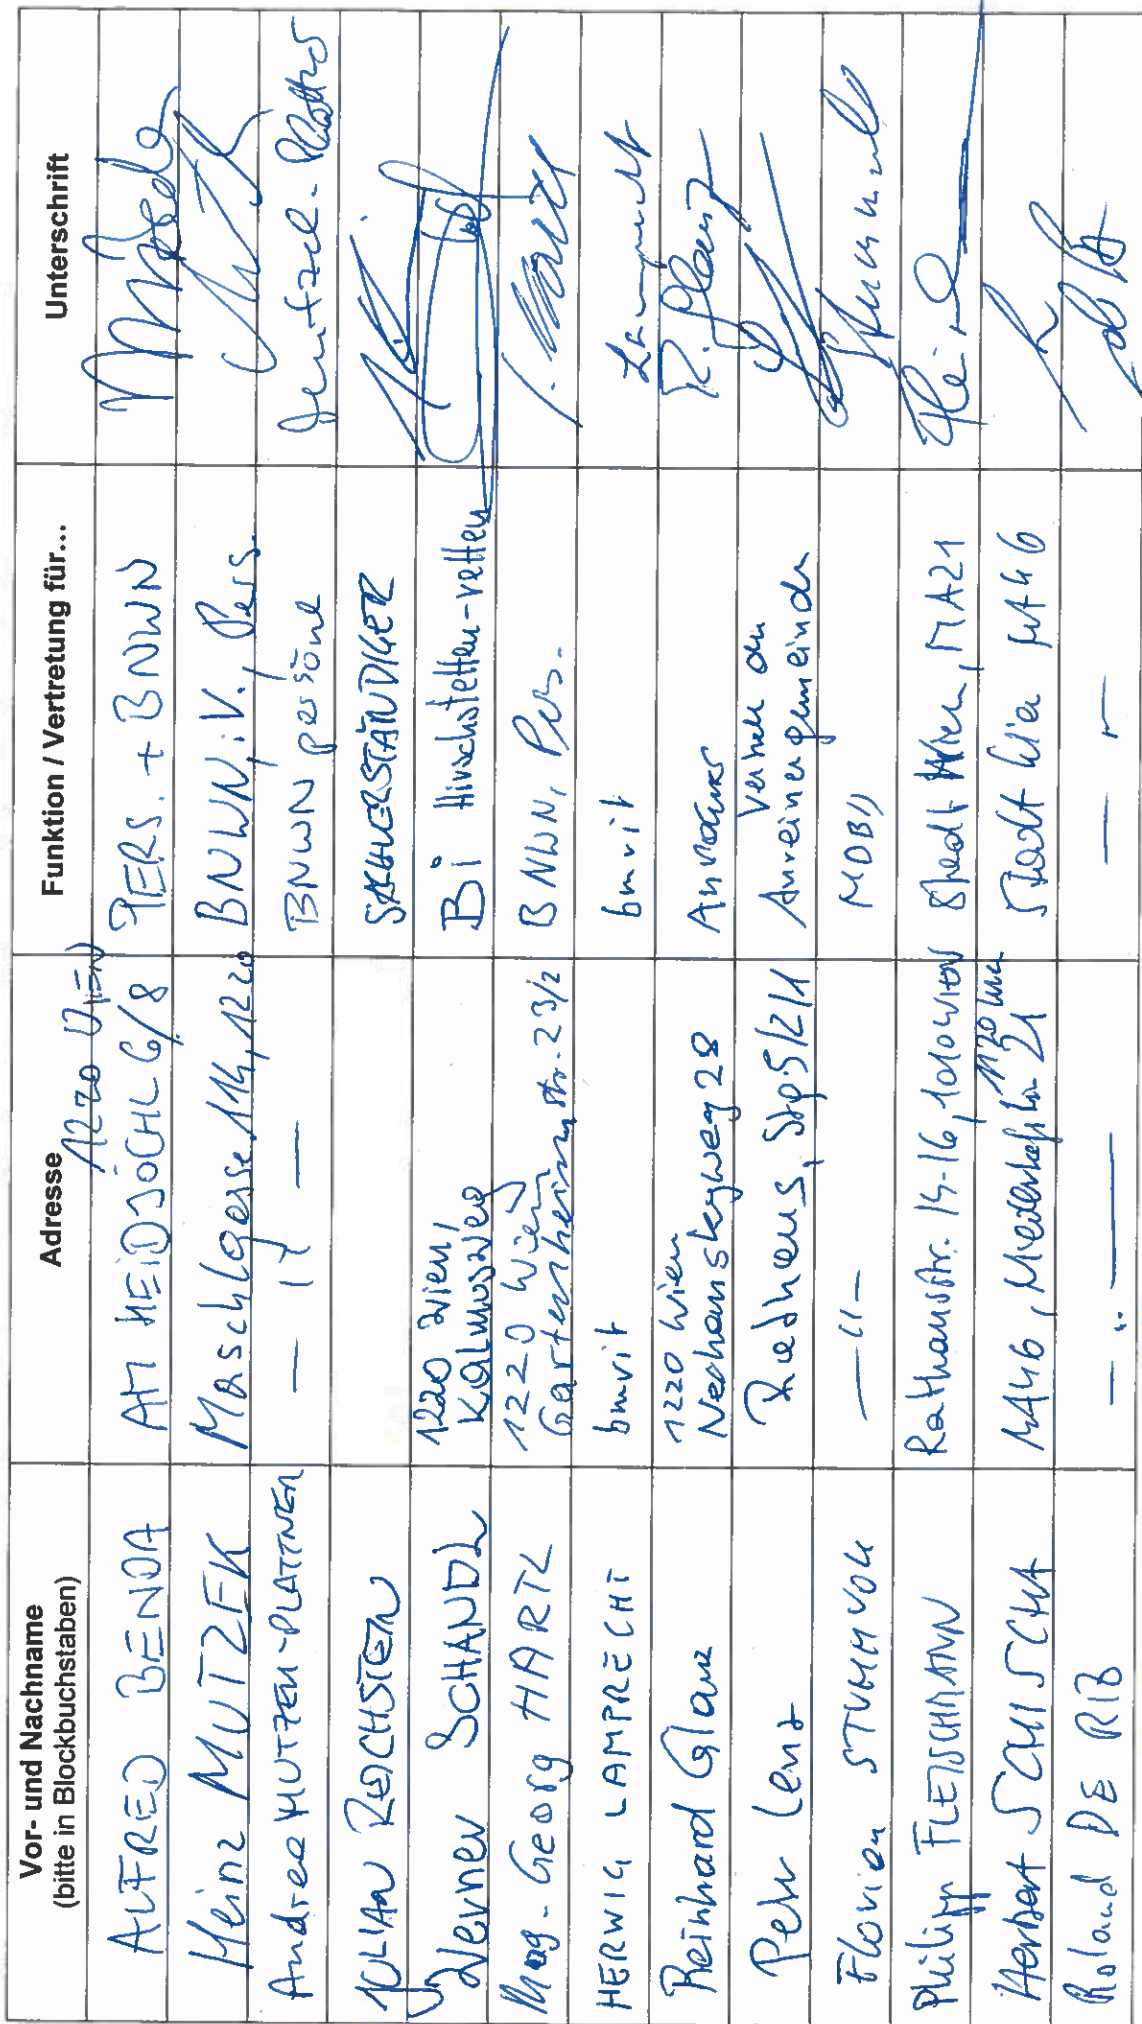 Vor- und Nachname
(bitte in Blockbuchstaben)
Adresse
Funktion / Vertretung für...
Unterschrift
ALFRED BENDA
1220 Wien
AM HEIDJÖCHL 6/8
PERS. + BNWN
Heinz MUTZEK
Maschlgasse 114, 1220
BNWN, i.V., Pers.
Andrea MUTZEK-PLATTNER
— " —
BNWN persönl
JULIAN REICHSTEIN
SACHVERSTÄNDIGER
Werner SCHANDL
1220 Wien,
Kalmusweg
Bi Hirschstetten-retten
Mag. Georg HARTL
1220 Wien
Gartenheimstr. 23/2
BNWN, Pers.
HERWIG LAMPRECHT
bmvit
bmvit
Lamprecht
Reinhard Glanz
1220 Wien
Nechanskyweg 28
Anrainer
R. Glanz
Peter Lenz
Rathaus, Stg 5/2/1
Florian STUMMVOLL
— " —
Philipp FLEISCHMANN
Rathausstr. 14-16, 1010 WIEN
Stadt Wien, MA21
Herbert SCHISCHA
1120 Wien
MA46, Niederhofstr. 21
Stadt Wien MA46
Roland DE RIZ
— " —
— " —